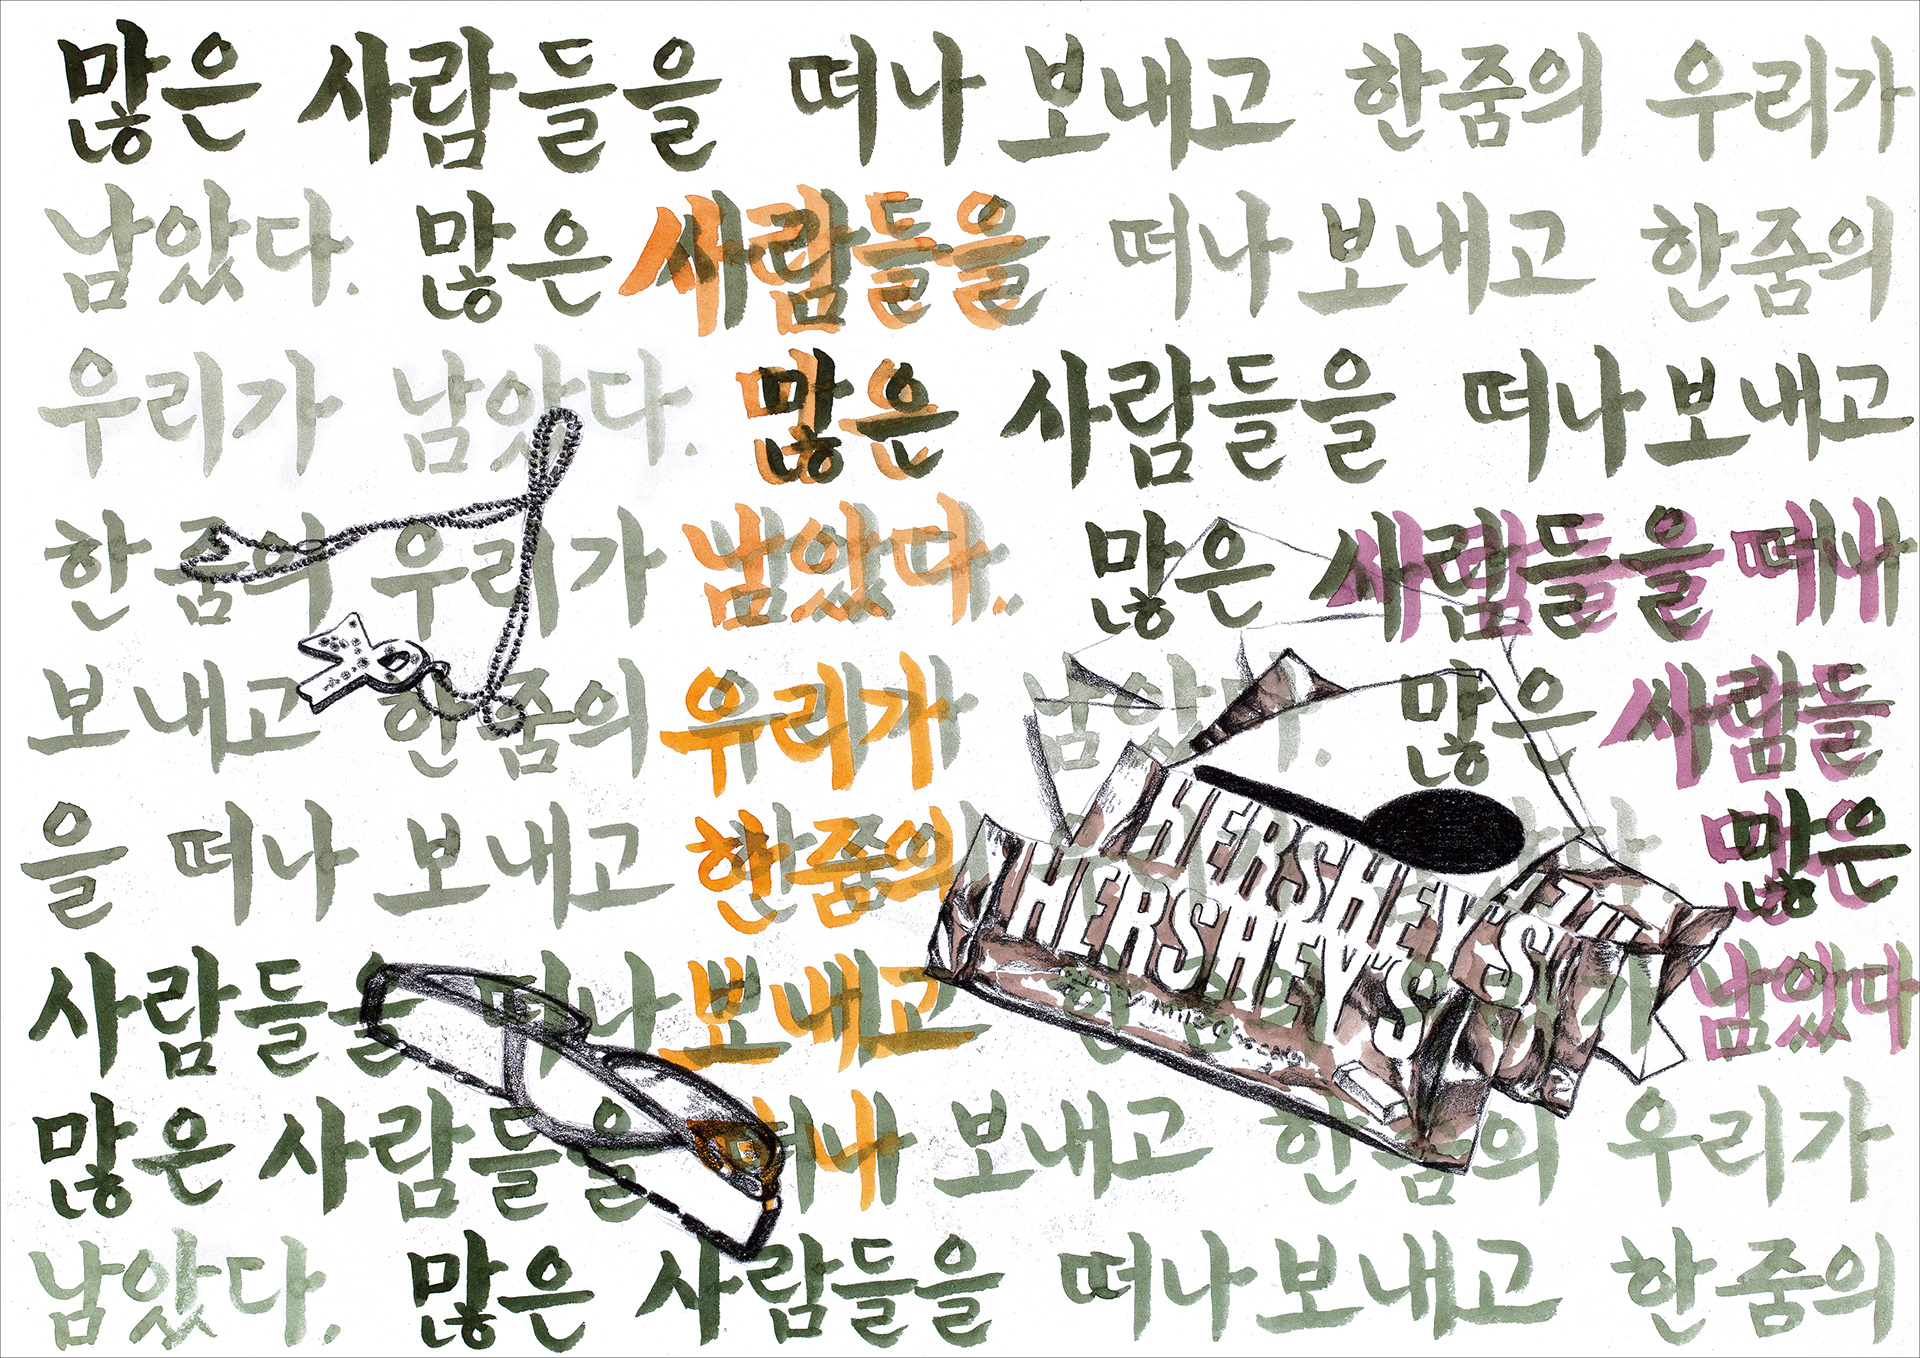 많은 사람들을 떠나 보내고 한줌의 우리가
남았다. 많은 사람들을 떠나 보내고 한줌의
우리가 남았다. 많은 사람들을 떠나 보내고
한 줌의 우리가 남았다.. 많은 사람들을 떠나
보내고 한줌의 우리가 남았다. 많은 사람들
을 떠나 보내고 한줌의 많은
사람들을 떠나 보내고 남았다
많은 사람들을 떠나 보내고 한줌의 우리가
남았다. 많은 사람들을 떠나 보내고 한 줌의
HERSHEY'S
HERSHEY'S